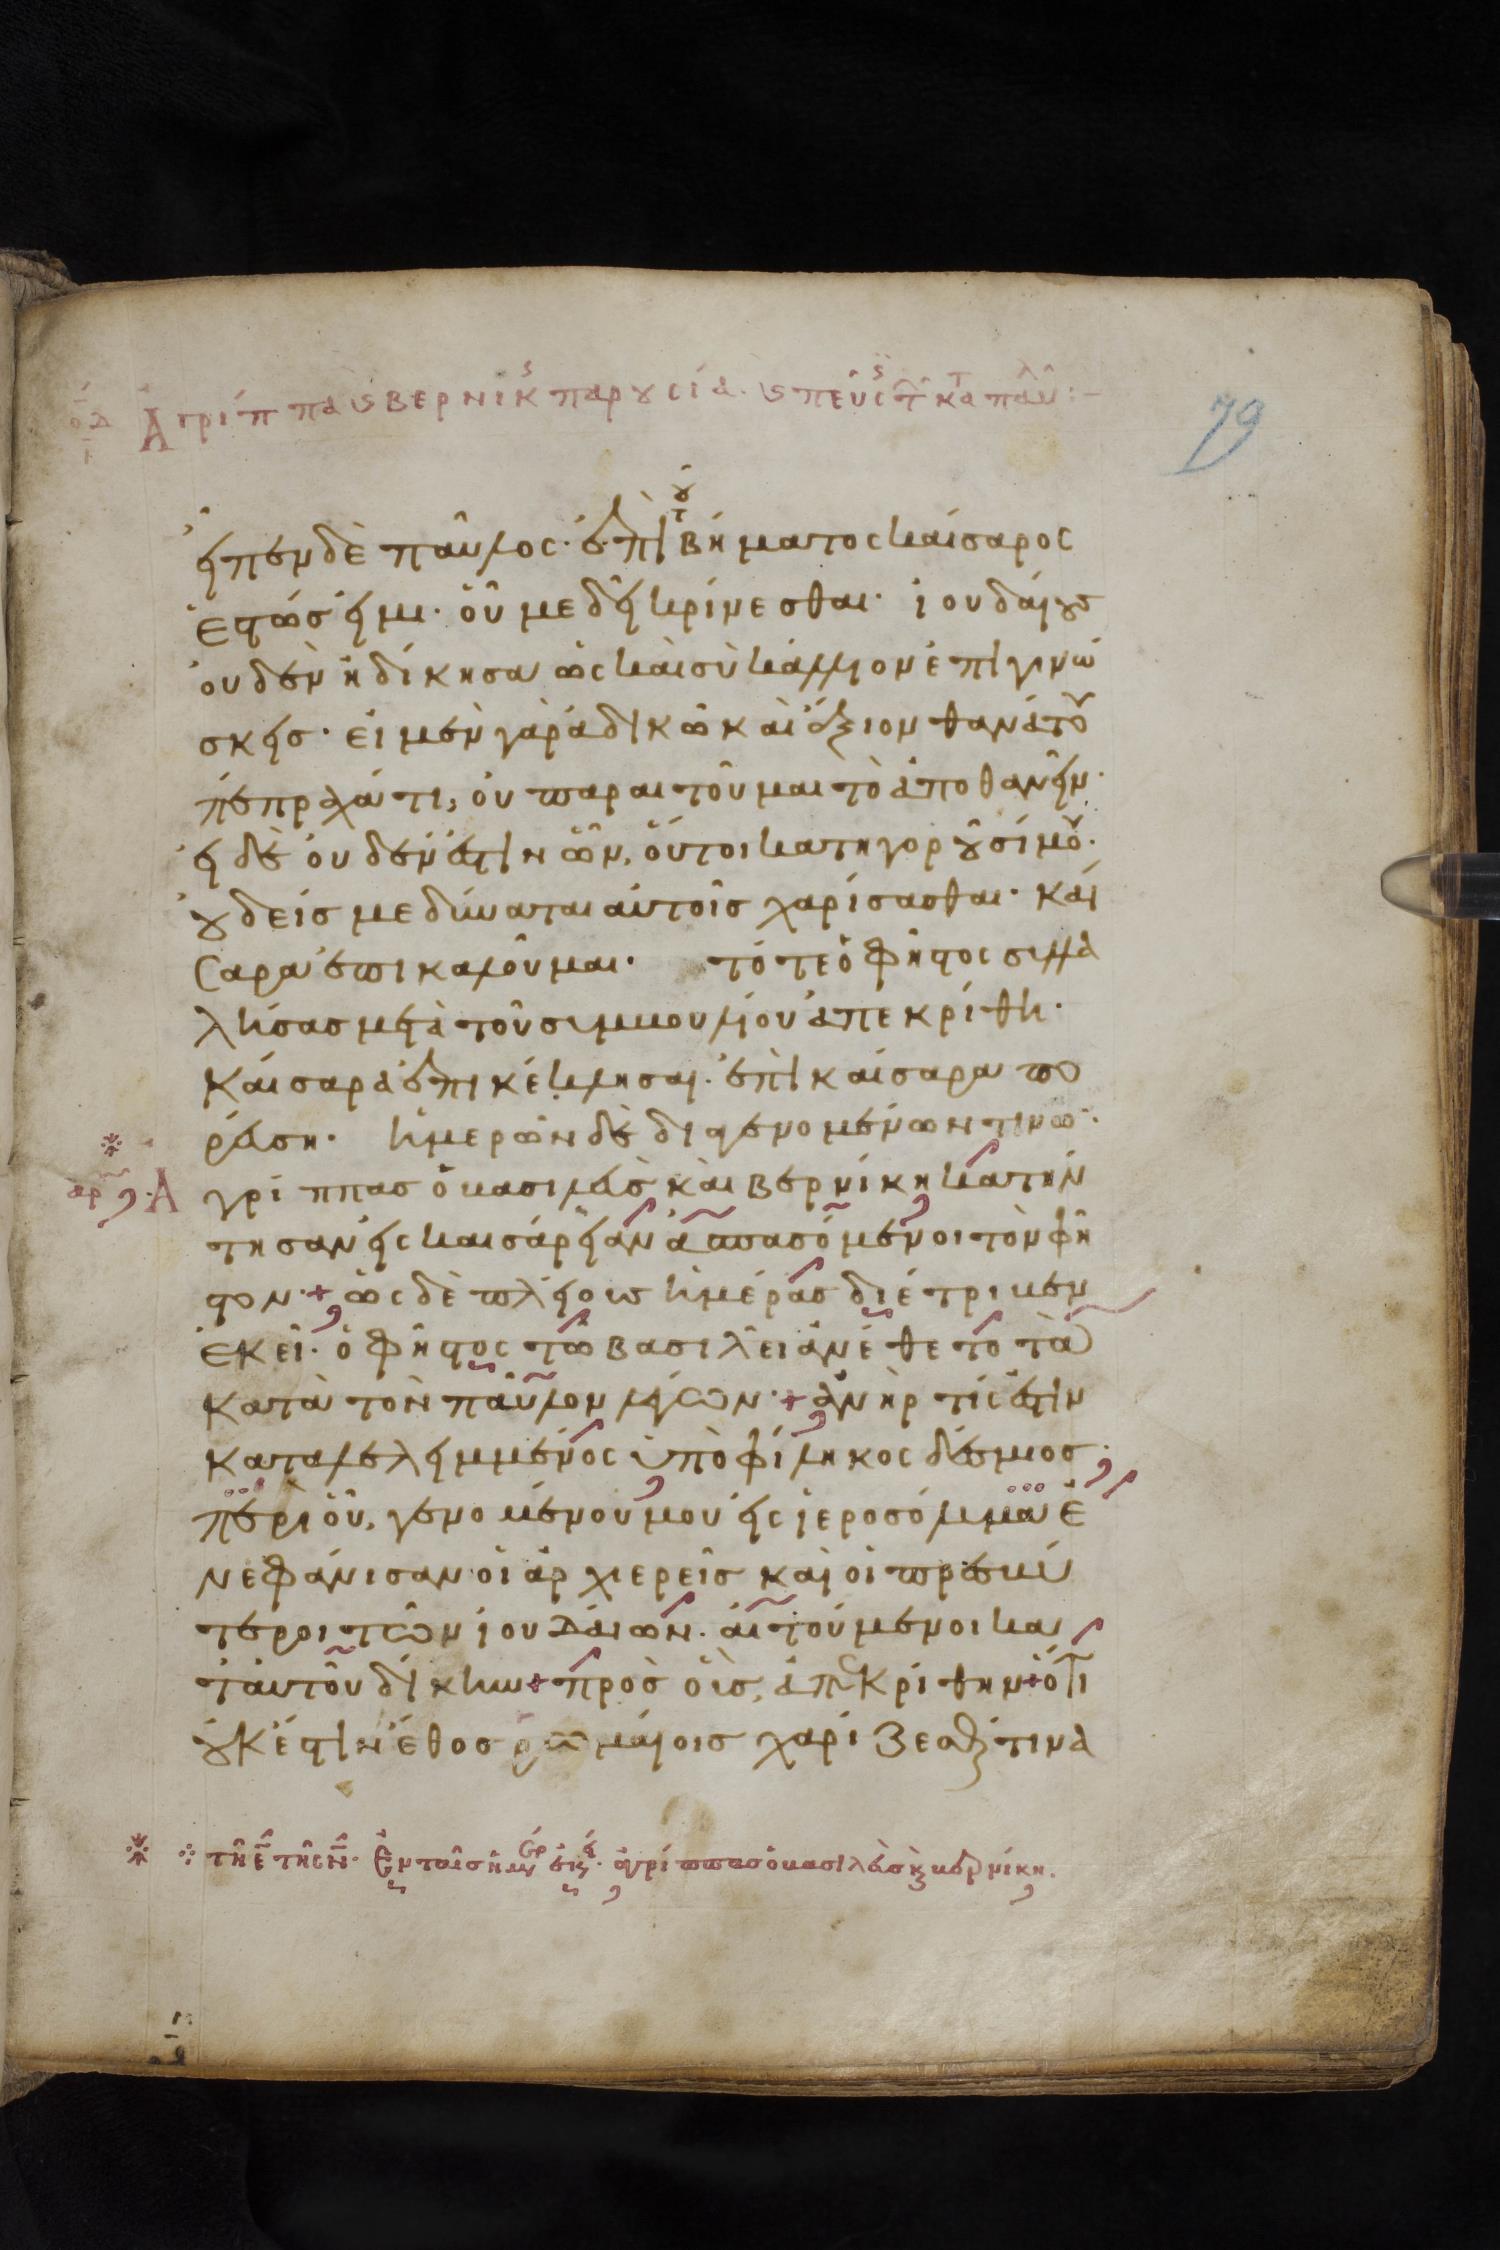 Ἀγρίππα ϗ βερνίκ παρουσία. ϗ πεῦσ τ κα παῦ:–
79
εἶπεν δὲ παῦλος· ἐπὶ τοῦ βήματος καίσαρος
ἑστώς εἰμι· οὗ με δεῖ κρίνεσθαι· ἰουδαίους
οὐδὲν ἠδίκησα ὡς καὶ σὺ κάλλιον ἐπιγινώ
σκεις· εἰ μὲν γὰρ ἀδικῶ καὶ ἄξιον θανάτου
πέπραχά τι, οὐ παραιτοῦμαι τὸ ἀποθανεῖν·
εἰ δὲ οὐδέν ἐστιν ὧν, οὗτοι κατηγοροῦσί μου·
οὐδείς με δύναται αὐτοῖς χαρίσασθαι· καί
σαρα ἐπικαλοῦμαι· τότε ὁ φῆστος συλλα
λήσας μετὰ τοῦ συμβουλίου ἀπεκρίθη·
Καίσαρα ἐπικέκλησαι· ἐπὶ καίσαρα πο
ρεύση· ἡμερῶν δὲ διαγενομένων τινῶν·
αρχ Ἀγρίππας ὁ βασιλεὺς καὶ βερνίκη κατήν
τησαν εἰς καισάρειαν ἀσπασόμενοι τὸν φῆ
στον·+ ὡς δὲ πλείους ἡμέρας διέτριβεν
ἐκεῖ· ὁ φῆστος τῶ βασιλεῖ ἀνέθετο τὰ
κατὰ τὸν παῦλον λέγων·+ ἀνήρ τίς ἐστιν
καταλελειμμένος ὑπὸ φίληκος δέσμιος·
περὶ οὗ, γενομένου μου εἰς ἱεροσόλυμα ἐ
νεφάνισαν οἱ ἀρχιερεῖς καὶ οἱ πρεσβύ
τεροι τῶν ἰουδαίων· αἰτούμενοι κα
τ' αὐτοῦ δίκην+ πρὸς οὓς, ἀπεκρίθην+ ὅτι
οὐκ ἔστιν ἔθος ῥωμαίοις χαρίζεσθαί τινα
τῆ ε τῆς ν· Ἐν ταῖς ἡμέρ ἐκ· ἀγρίππας ὁ βασιλεὺς ϗ βερνίκη.